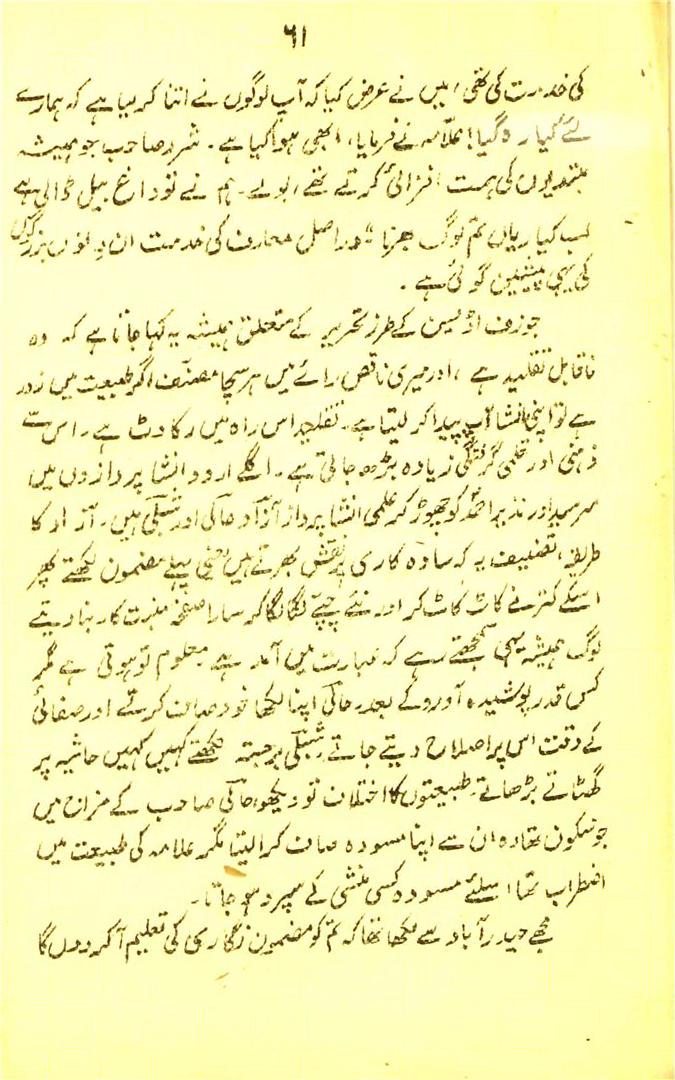 ۶۱
کی خدمت کی تھی، میں نے عرض کیا کہ آپ لوگوں نے اتنا کر لیا ہے کہ ہمارے
لئے کیا رہ گیا! علامہ نے فرمایا، ابھی ہوا کیا ہے۔ شرر صاحب جو ہمیشہ
مبتدیوں کی ہمت افزائی کرتے تھے، بولے۔ ہم نے تو داغ بیل ڈالی ہے
اب کیاریاں تم لوگ بھرنا" دراصل معارف کی خدمت ان دونوں بزرگوں
کی یہی پیشین گوئی ہے۔
جوزف اڈیسن کے طرز تحریر کے متعلق ہمیشہ یہ کہا جاتا ہے کہ وہ
ناقابل تقلید ہے، اور میری ناقص رائے میں ہر سچا مصنف اگر طبیعت میں زور
ہے تو اپنی انشا آپ پیدا کر لیتا ہے۔ تقلید اس راہ میں رکاوٹ ہے۔ اس سے
ذہنی اور قلمی زیادہ بڑھ جاتی ہے۔ اگلے اردو انشا پردازوں میں
سرسید اور نذیر احمد کو چھوڑ کر علمی انشا پرداز آزاد حالی اور شبلی ہیں۔ آزاد کا
طریقہ، تصنیف یہ کہ سادہ کاری پر نقش بھرتے ہیں یعنی پہلے مضمون لکھتے پھر
اسکے کترنے کاٹ کاٹ کر اور نئے چیپے لگا لگا کر سارا صفحہ منبت کار بنا دیتے
لوگ ہمیشہ یہی سمجھتے رہے کہ عبارت میں آمد ہے معلوم تو ہوتی ہے مگر
کس قدر پوشیدہ آورد کے بعد۔ حالی اپنا لکھا خود صاف کرتے اور صفائی
کے وقت اس پر اصلاح دیتے جاتے، شبلی برجستہ لکھتے کہیں کہیں حاشیہ پر
گھٹاتے بڑھاتے۔ طبیعتوں کا اختلاف تو دیکھو، حالی صاحب کے مزاج میں
جو سکون تھا وہ ان سے اپنا مسودہ صاف کرا لیتا مگر علامہ کی طبیعت میں
اضطراب تھا اسلئے مسودہ کسی منشی کے سپرد ہو جاتا۔
مجھے حیدرآباد سے لکھا تھا کہ تم کو مضمون نگاری کی تعلیم آ کر دوں گا